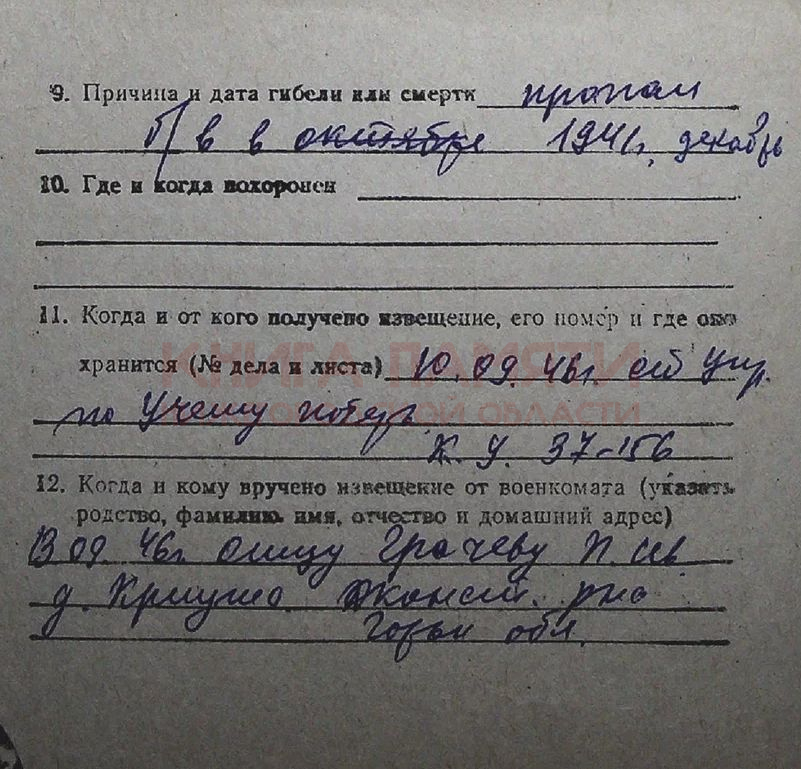 9. Причина и дата гибели или смерти пропал
б/в в октябре 1941г. декабрь
10. Где и когда похоронен
11. Когда и от кого получено извещение, его номер и где оно
хранится (№ дела и листа) 10.09.46г. Упр.
КНИГА ПАМЯТИ
по учету потерь
ОБЛАСТИ
К. У. 37-156
12. Когда и кому вручено извещение от военкомата (указать
родство, фамилию, имя, отчество и домашний адрес)
13 09. 46г. отцу Грачеву П. Ив
д. Криуша р-на
Горьк обл.